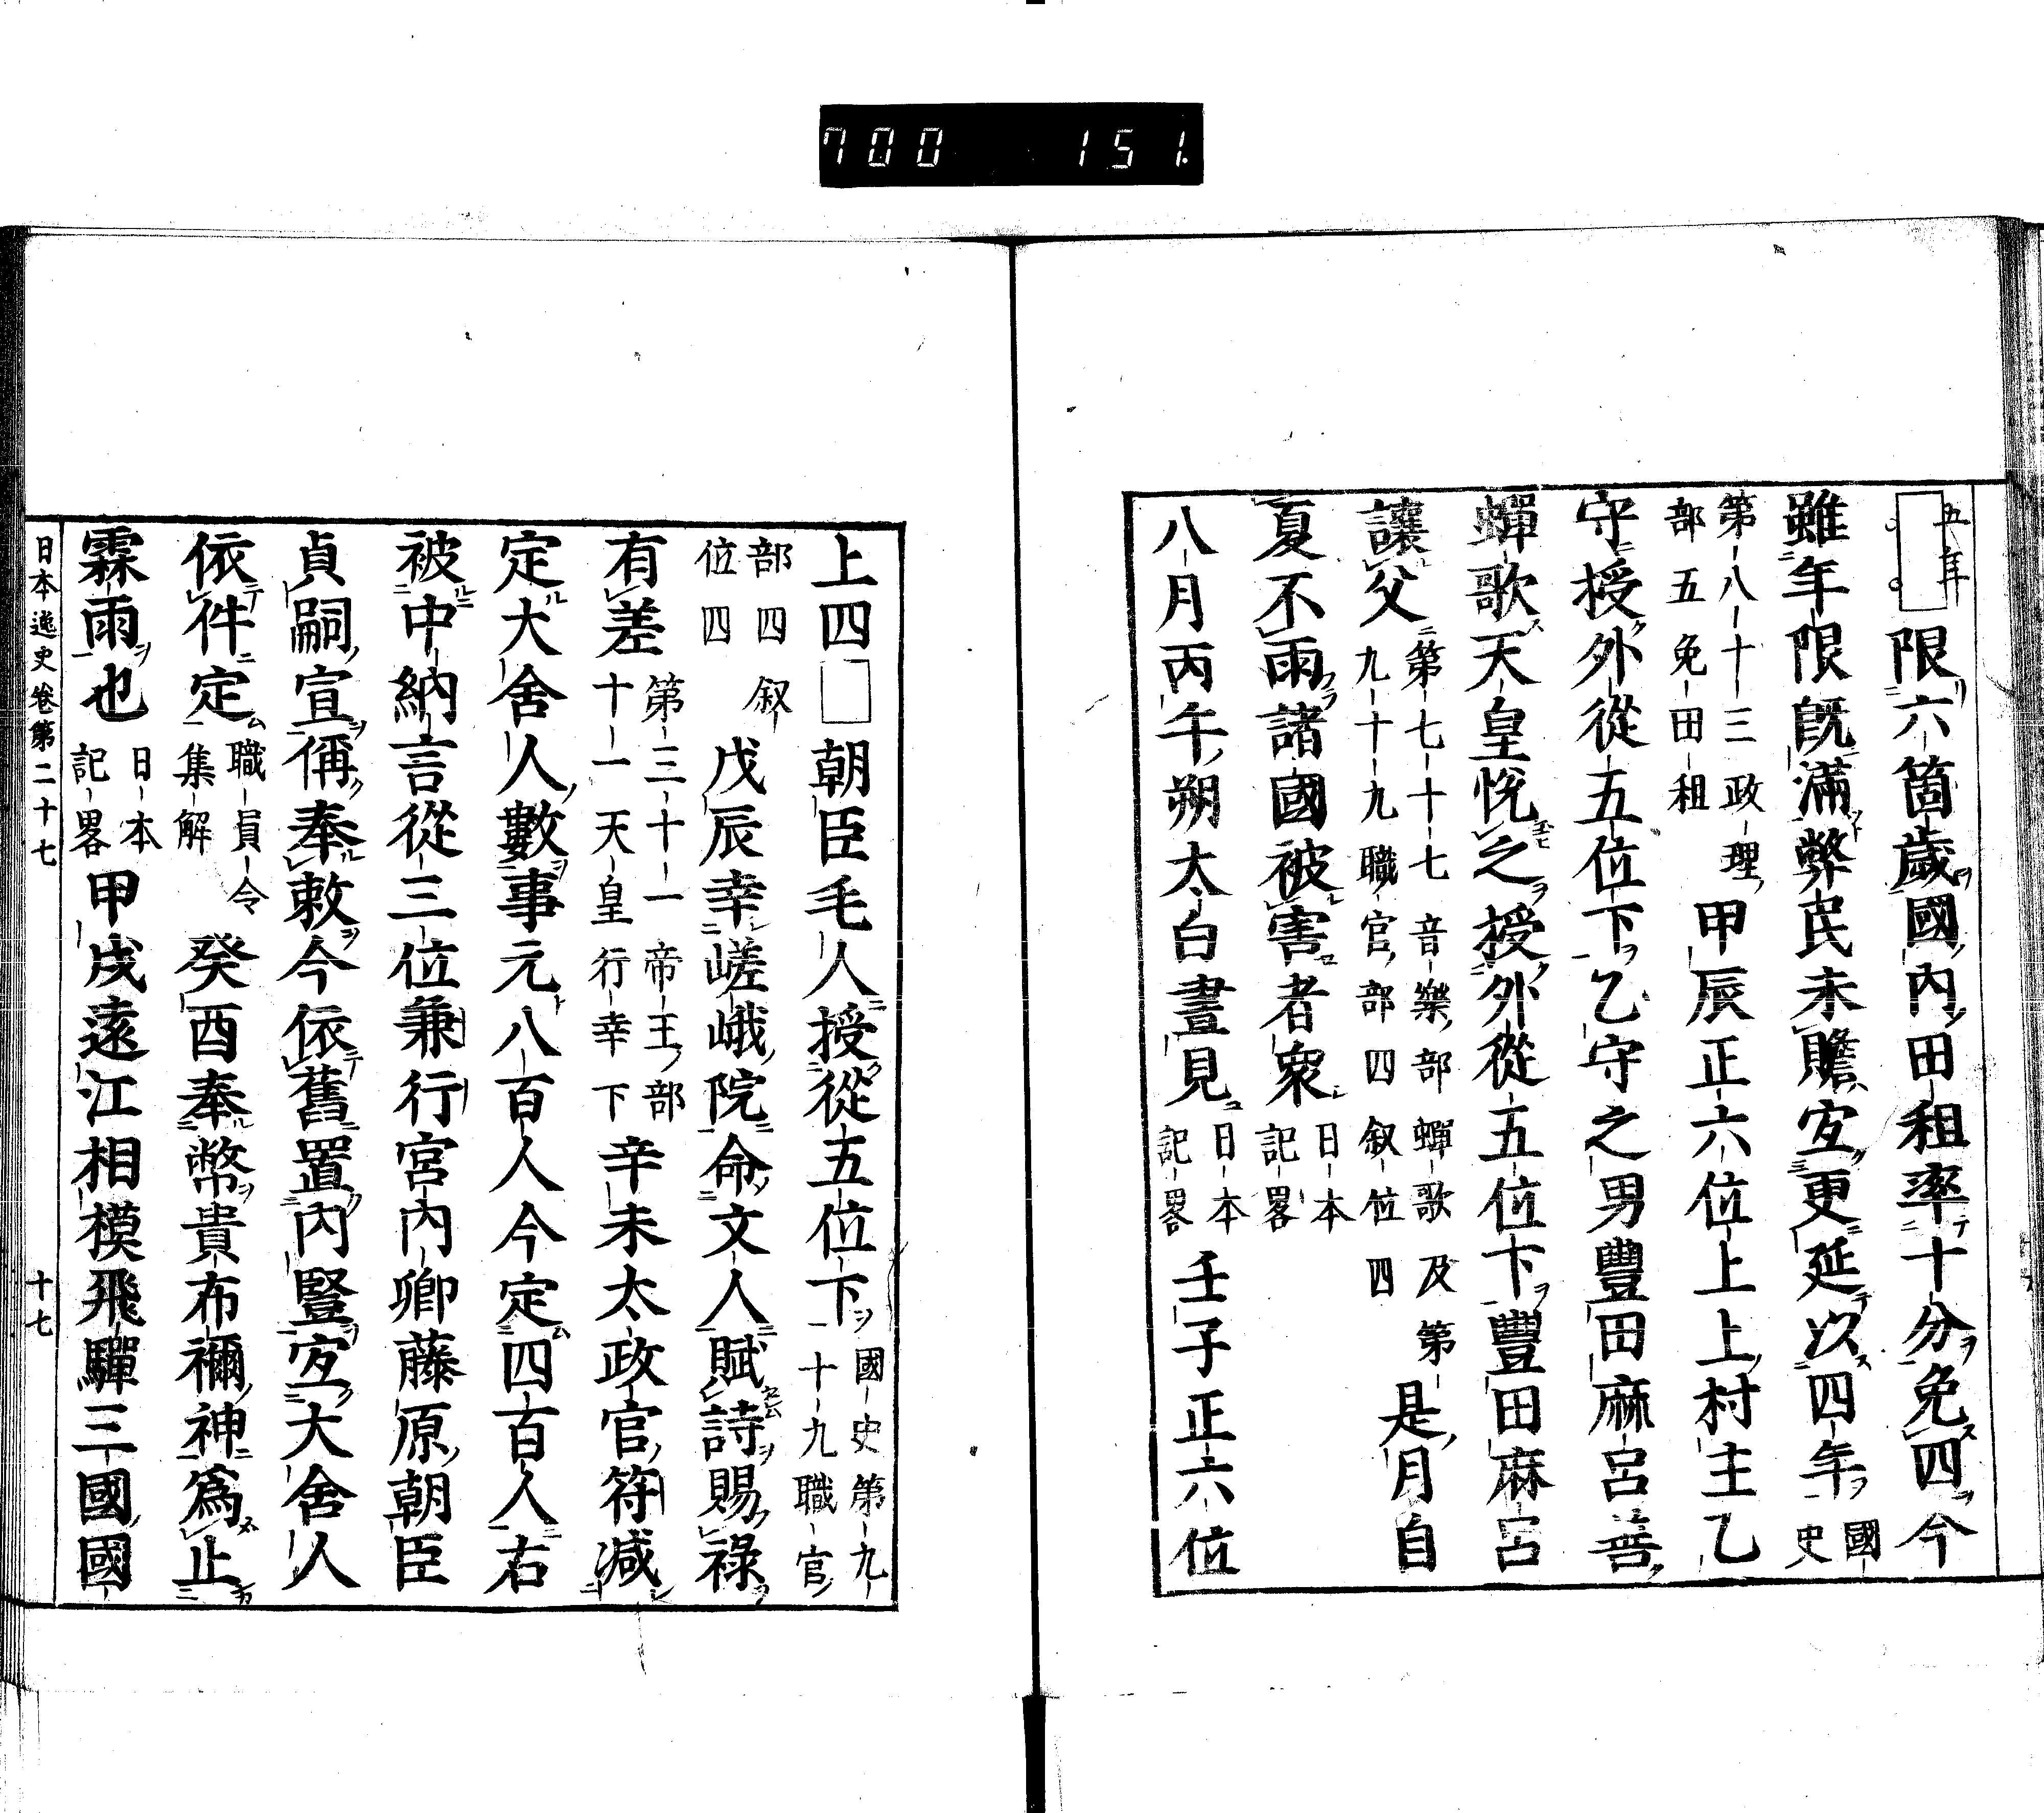 700 151
五年
□限六箇歲國內田租率十分免四今
雖年限既滿弊民未贍宜更延以四年國史
第八十三政理部五免田租甲辰正六位上上村主乙
守授外從五位下乙守之男豐田麻呂善
蟬歌天皇悅之授外從五位下豐田麻呂
讓父第七十七音樂部蟬歌及第九十九職官部四叙位四是月自
夏不雨諸國被害者衆日本記畧
八月丙午朔太白晝見日本記畧壬子正六位
上四□朝臣毛人授從五位下國史第九十九職官
部四叙位四戊辰幸嵯峨院命文人賦詩賜祿
有差第三十一帝王部十一天皇行幸下辛未太政官符減
定大舍人數事元八百人今定四百人右
被中納言從三位兼行宮內卿藤原朝臣
貞嗣宣偁奉敕今依舊置內豎宜大舍人
依件定職員令集解癸酉奉幣貴布禰神爲止
霖雨也日本記畧甲戌遠江相模飛驒三國國
日本逸史卷第二十七 十七